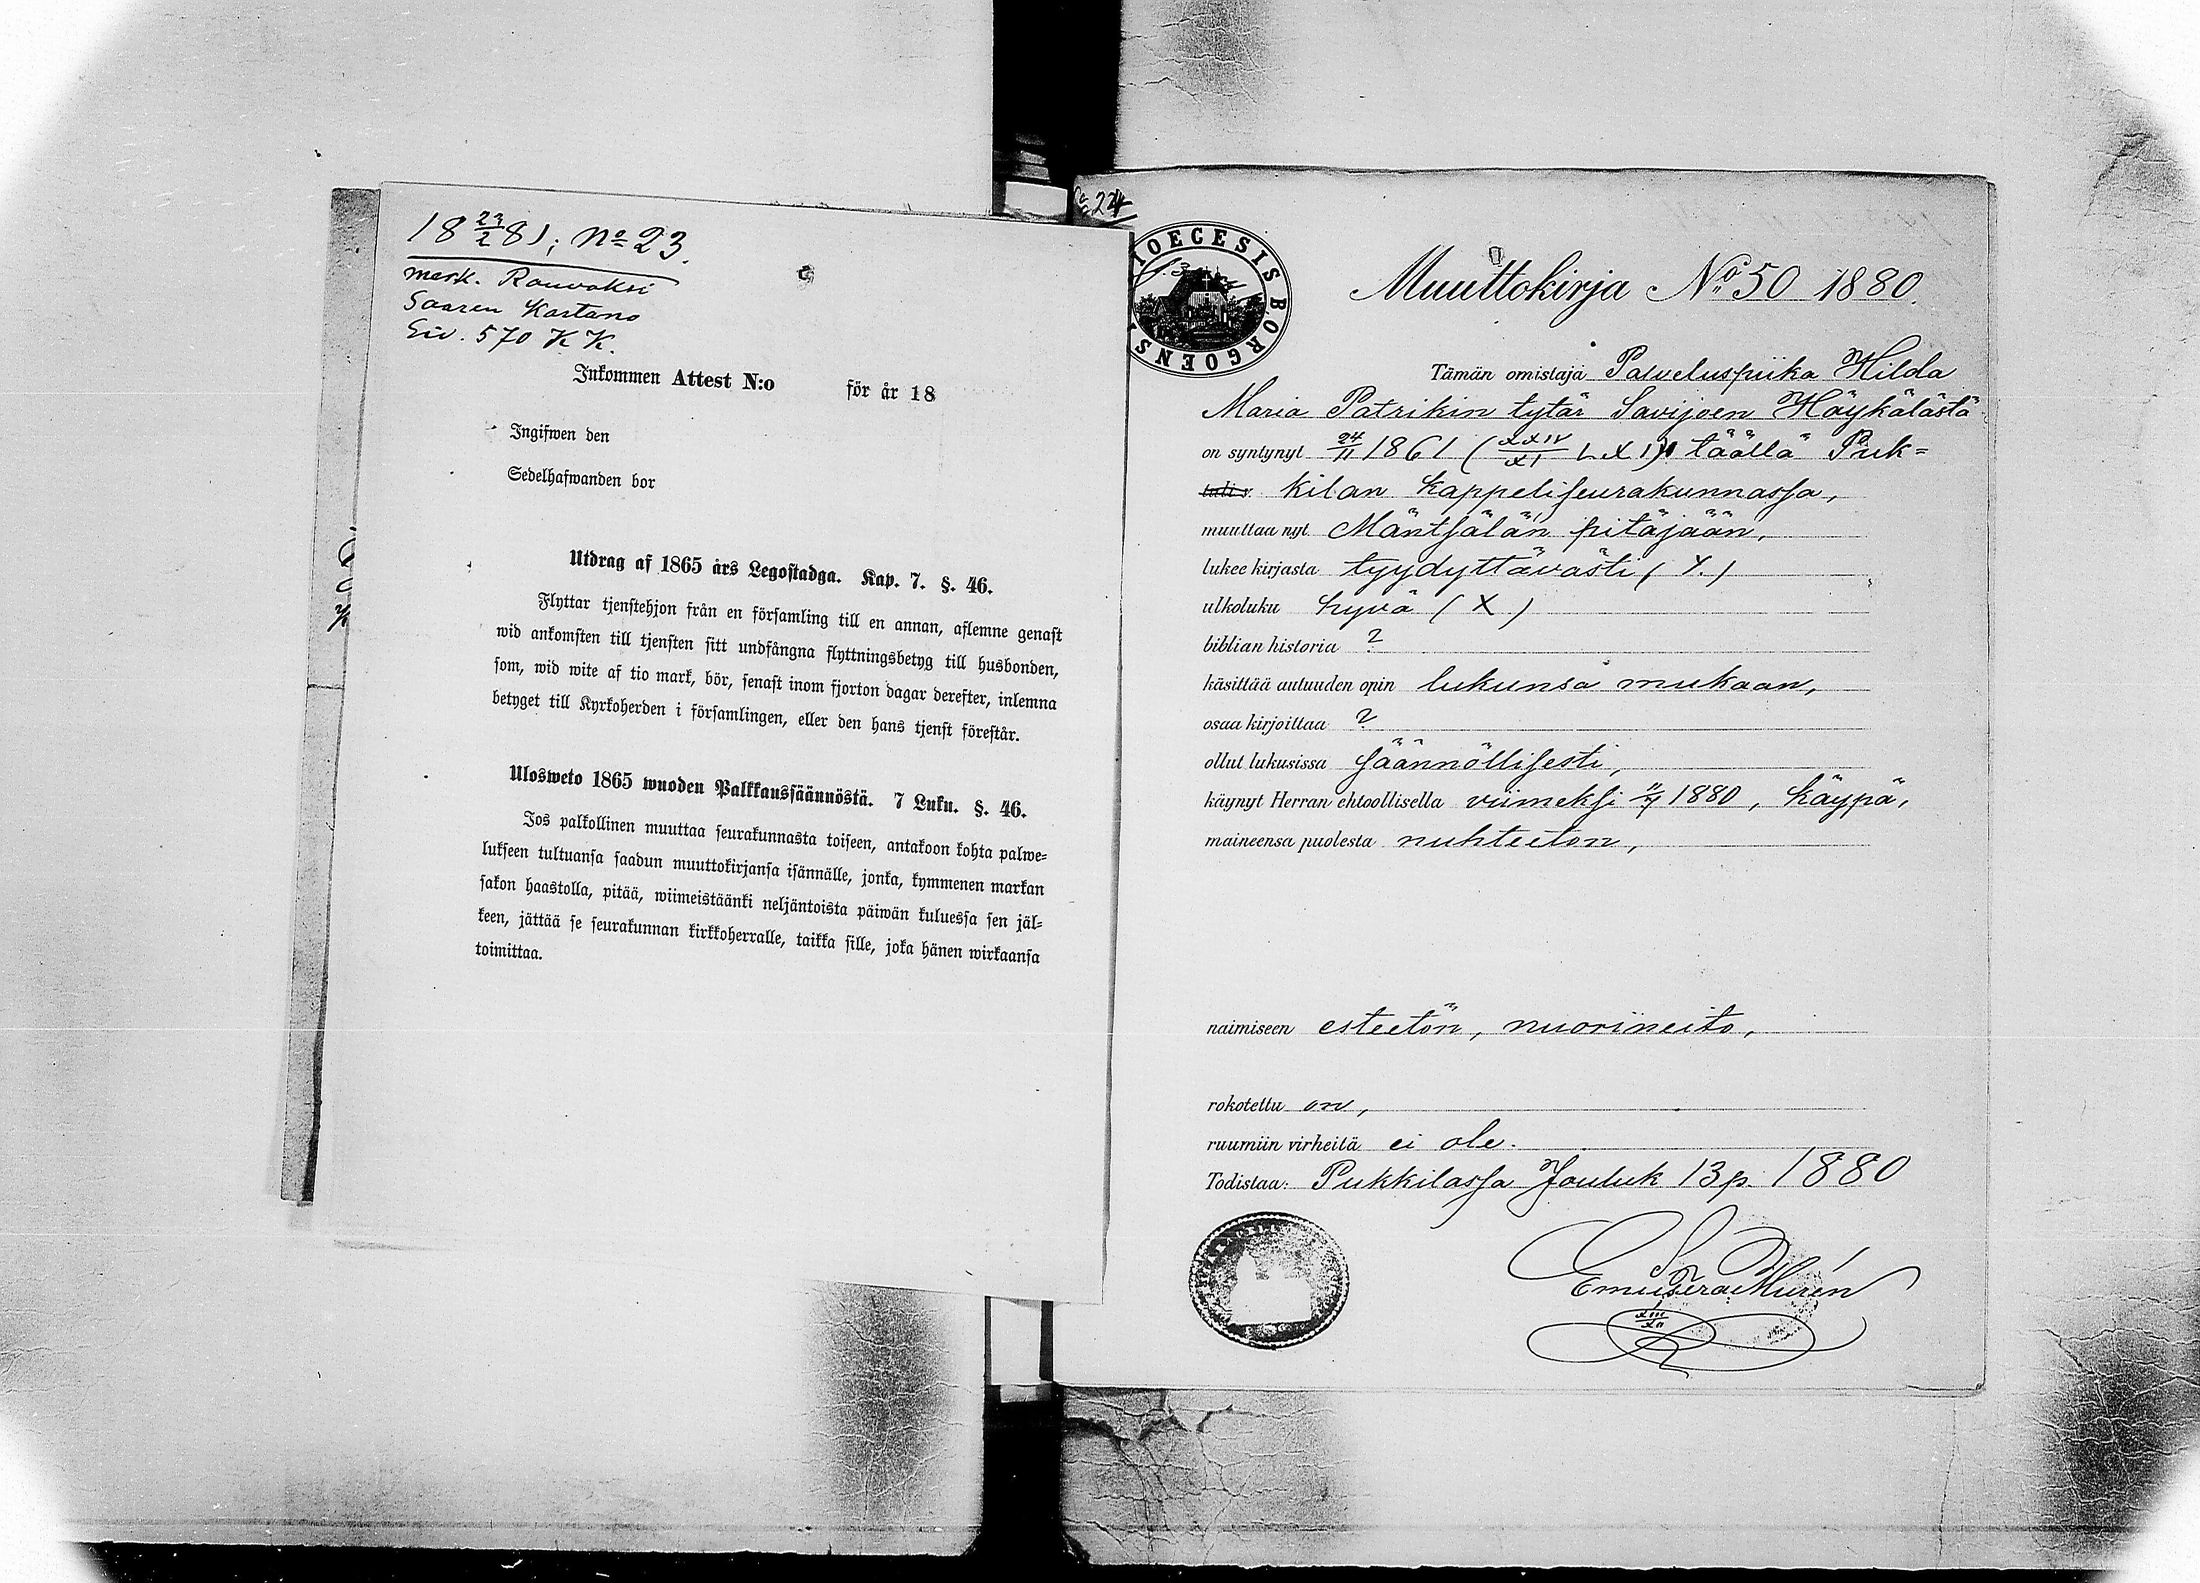 18 23/2 81; No 23.
merk. Rouvaksi
Saaren Kartano
Siv. 570 K K.
Inkommen Attest N:o för år 18
Ingifwen den
Sedelhafwanden bor
Utdrag af 1865 års Legostadga. Kap. 7. §. 46.
Flyttar tjenstehjon från en församling till en annan, aflemne genast
wid ankomsten till tjensten sitt undfångna flyttningsbetyg till husbonden,
som, wid wite af tio mark, bör, senast inom fjorton dagar derefter, inlemna
betyget till Kyrkoherden i församlingen, eller den hans tjenst förestår.
Ulosweto 1865 wuoden Palkkaussäännöstä. 7 Luku. §. 46.
Jos palkollinen muuttaa seurakunnasta toiseen, antakoon kohta palwe=
lukseen tultuansa saadun muuttokirjansa isännälle, jonka, kymmenen markan
sakon haastolla, pitää, wiimeistäänki neljäntoista päiwän kuluessa sen jäl=
keen, jättää se seurakunnan kirkkoherralle, taikka sille, joka hänen wirkaansa
toimittaa.
224
DIOECESIS BORGOENS
Muuttokirja No 50 1880.
Tämän omistaja Palveluspiika Hilda
Maria Patrikin tytär Savijoen Höykälästä
on syntynyt 24/11 1861 (XXIV/XI LXI) täällä Puk=
kilan kappeliseurakunnassa,
muuttaa nyt Mäntsälän pitäjään,
lukee kirjasta tyydyttävästi (Y.)
ulkoluku hyvä (X)
biblian historia ?
käsittää autuuden opin lukunsa mukaan,
osaa kirjoittaa ?
ollut lukusissa säännöllisesti,
käynyt Herran ehtoollisella viimeksi 11/7 1880, käypä,
maineensa puolesta nuhteeton,
naimiseen esteetön, nuorineito,
rokotettu on,
ruumiin virheitä ei ole.
Todistaa: Pukkilassa Jouluk 13 p. 1880
XIII/XII